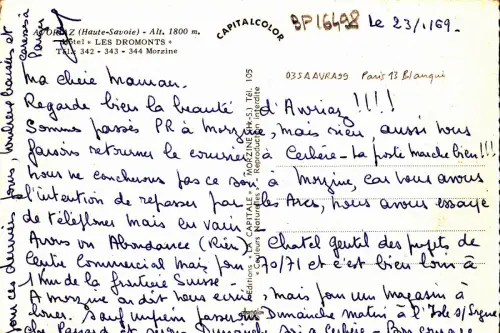 AVORIAZ (Haute-Savoie) - Alt. 1800 m.
Hôtel « LES DROMONTS »
Tél. 342 - 343 - 344 Morzine
CAPITALCOLOR
BP16498 Le 23/1/69.
035AAVRA99 Paris 13 Blanqui
Ma chère Maman.
Regarde bien la beauté d'Avoriaz !!!!
Sommes passés PR à Morzine, mais rien, aussi nous
faisons retourner le courrier à Cerbère - La poste marche bien !!!
Nous ne concluerons pas ce soir à Morzine, car nous avons
l'intention de repasser par les Arcs, nous avons essayé
de téléfoner mais en vain
Avons vu Abondance (Rien) Chatel gentil des projets de
Centre Commercial mais pour 70/71 et c'est bien loin à
1 Km de la frontière Suisse -
A morzine on doit nous écrire, mais pour un magasin à
louer. Sauf imprévu passerons Dimanche matin à l'Isle s/
Editions « LA CAPITALE » MORZINE (Hte-S.) Tél. 105
« Couleurs Naturelles » Reproduction interdite
ces derniers jours, tendres baisers et
caresses à